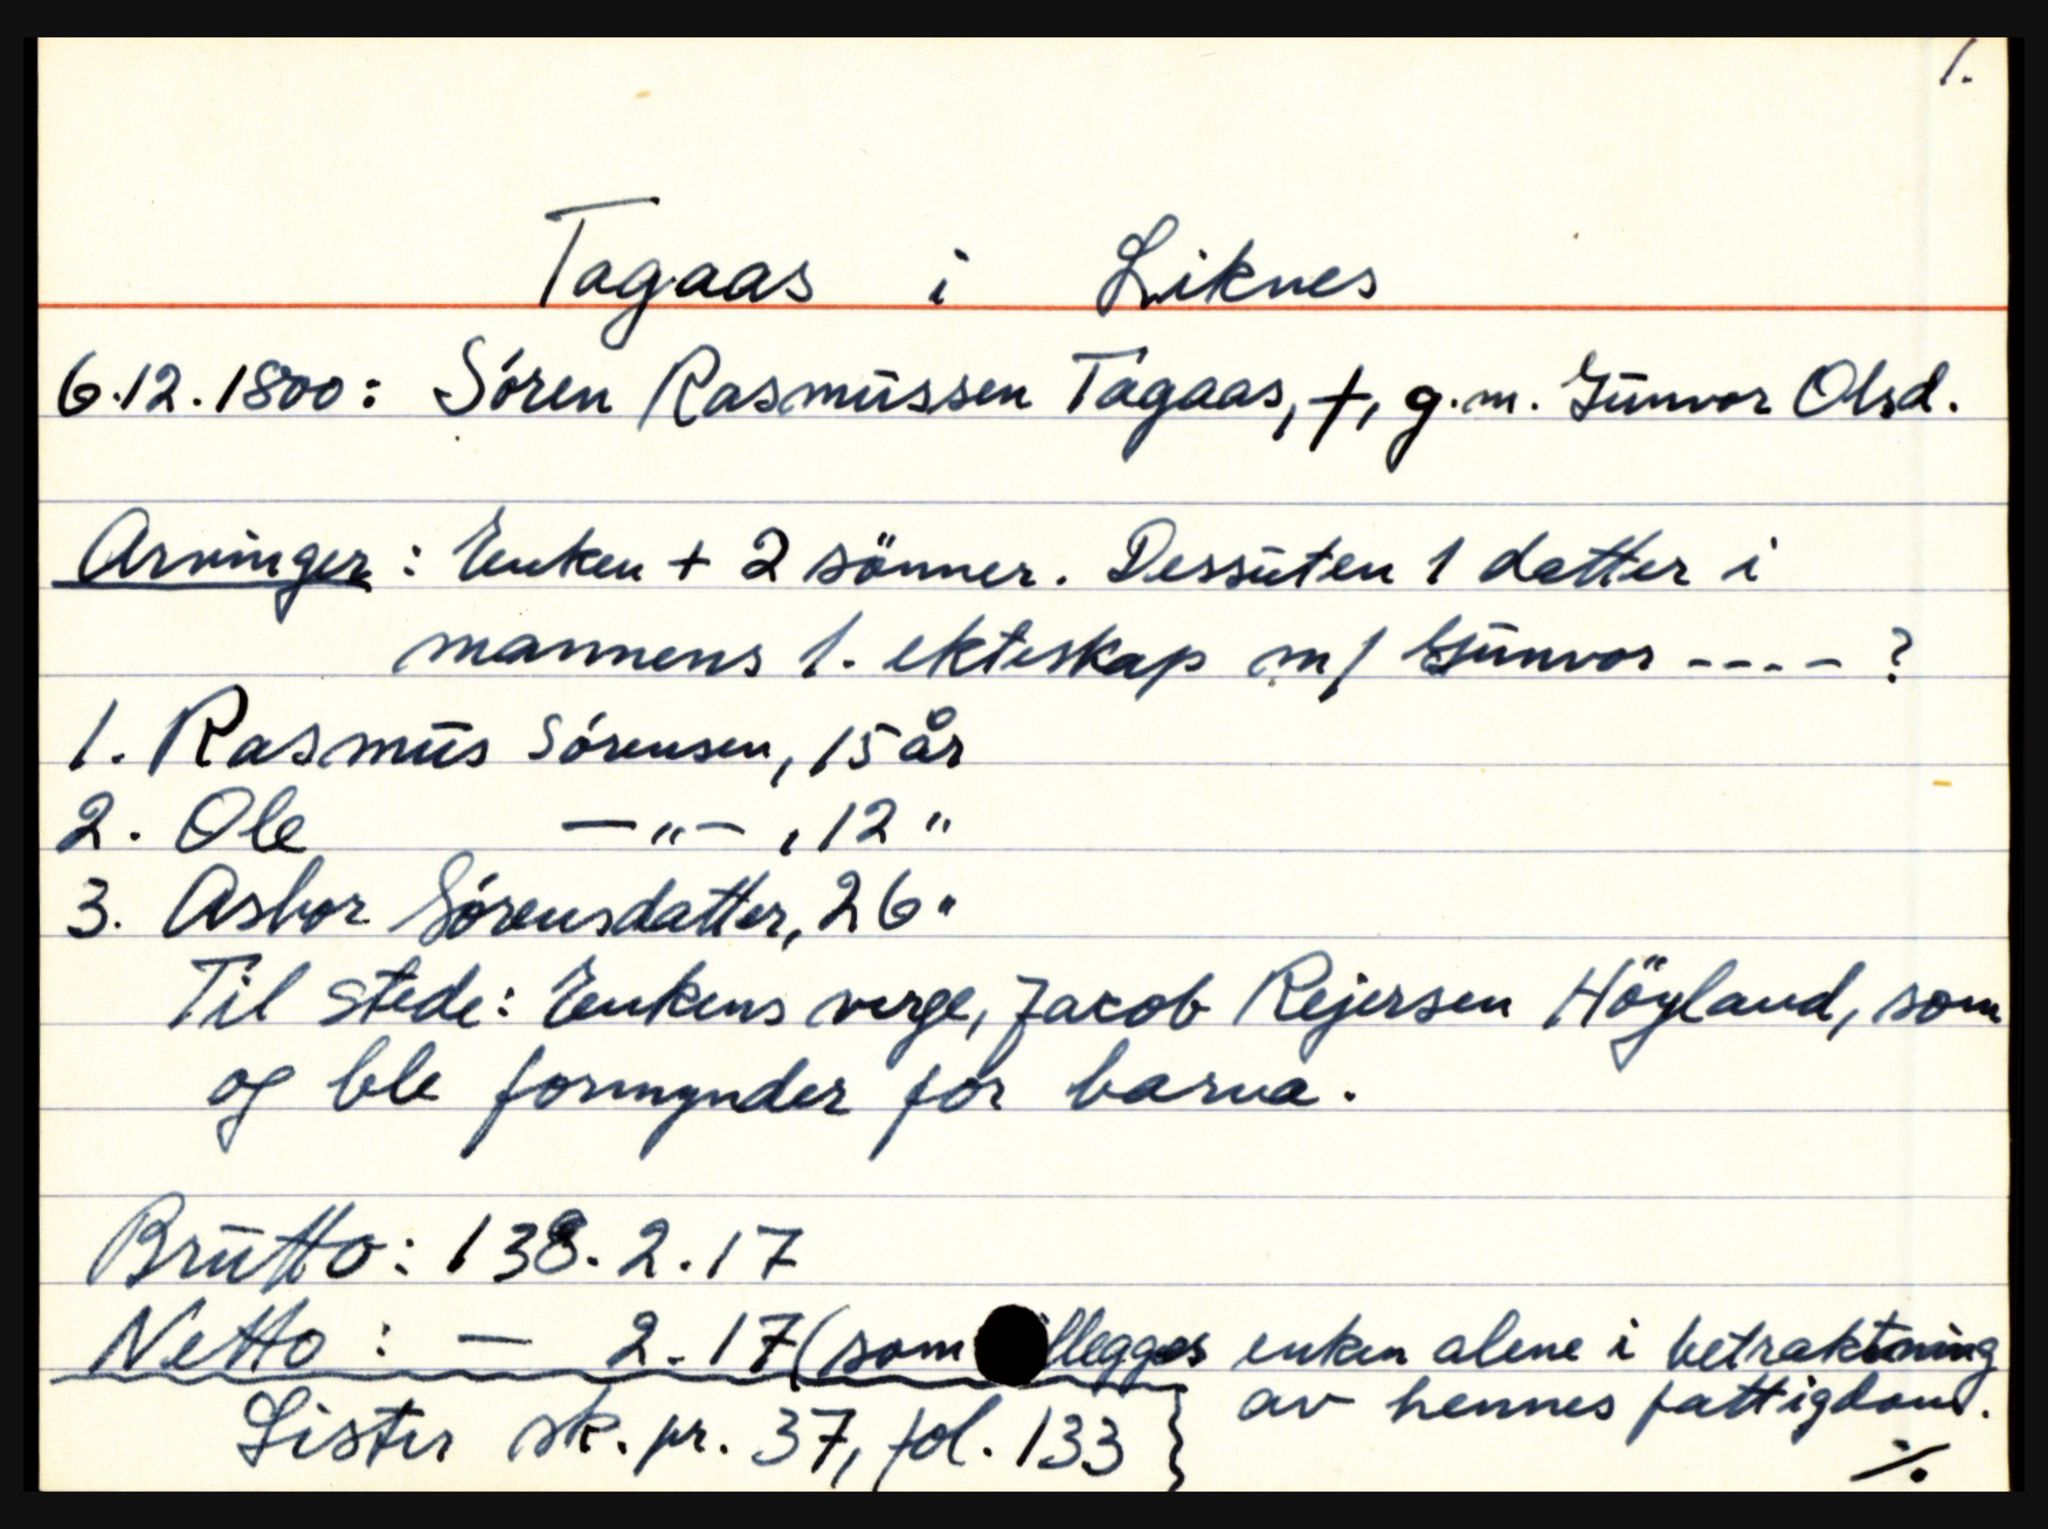 1.
Tagaas i Liknes
6.12.1800: Sören Rasmussen Tagaas, †, g.m. Gunvor Olsd.
Arvinger: Enken + 2 sönner. Dessuten 1 datter i
mannens 1. ekteskap m/ Gunvor ---- ?
1. Rasmus Sörensen, 15 år
2. Ole —"— , 12 "
3. Asbor Sörensdatter, 26 "
Til stede: Enkens verge, Jacob Rejersen Höyland, som
og ble formynder for barna.
Brutto: 138.2.17
Netto: — 2.17 (som illegges enken alene i betraktning
av hennes fattigdom.
Lister sk. pr. 37, fol. 133 }
./.